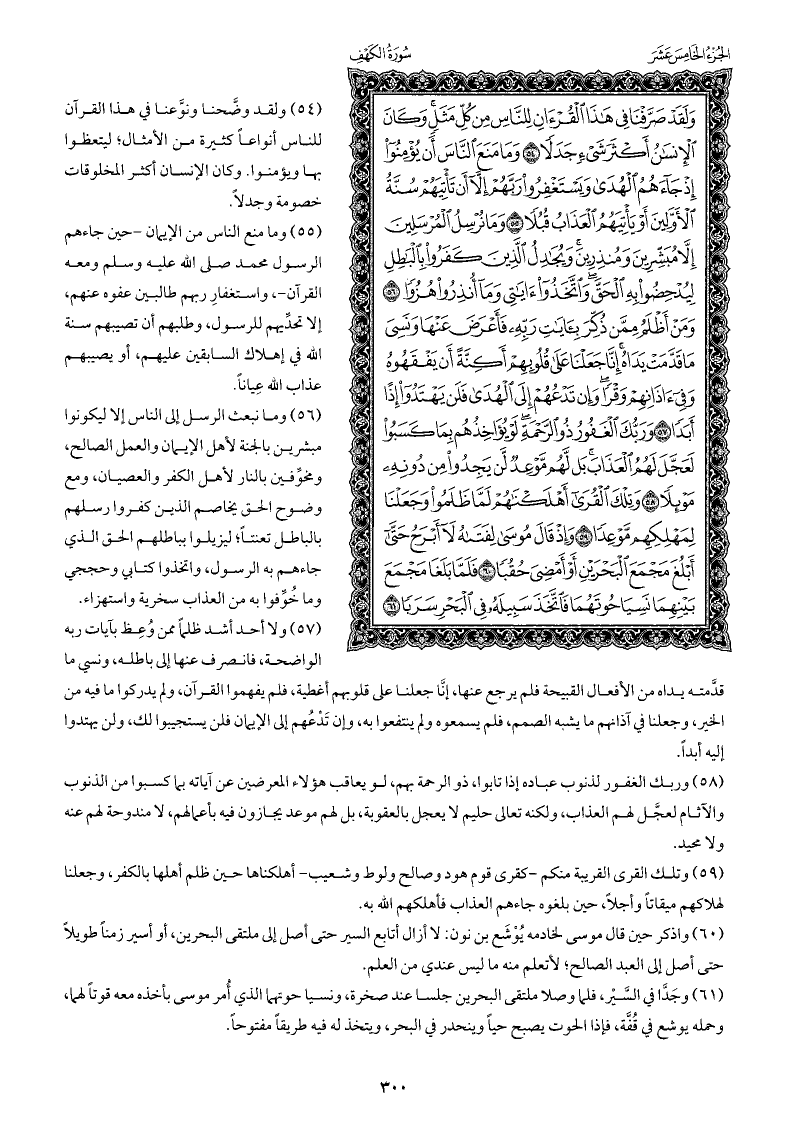 الجزء الخامس عشر
سورة الكهف
وَلَقَدۡ صَرَّفۡنَا فِي هَٰذَا ٱلۡقُرۡءَانِ لِلنَّاسِ مِن كُلِّ مَثَلٖۚ وَكَانَ
ٱلۡإِنسَٰنُ أَكۡثَرَ شَيۡءٖ جَدَلٗا ٥٤ وَمَا مَنَعَ ٱلنَّاسَ أَن يُؤۡمِنُوٓاْ
إِذۡ جَآءَهُمُ ٱلۡهُدَىٰ وَيَسۡتَغۡفِرُواْ رَبَّهُمۡ إِلَّآ أَن تَأۡتِيَهُمۡ سُنَّةُ
ٱلۡأَوَّلِينَ أَوۡ يَأۡتِيَهُمُ ٱلۡعَذَابُ قُبُلٗا ٥٥ وَمَا نُرۡسِلُ ٱلۡمُرۡسَلِينَ
إِلَّا مُبَشِّرِينَ وَمُنذِرِينَۚ وَيُجَٰدِلُ ٱلَّذِينَ كَفَرُواْ بِٱلۡبَٰطِلِ
لِيُدۡحِضُواْ بِهِ ٱلۡحَقَّۖ وَٱتَّخَذُوٓاْ ءَايَٰتِي وَمَآ أُنذِرُواْ هُزُوٗا ٥٦
وَمَنۡ أَظۡلَمُ مِمَّن ذُكِّرَ بِـَٔايَٰتِ رَبِّهِۦ فَأَعۡرَضَ عَنۡهَا وَنَسِيَ
مَا قَدَّمَتۡ يَدَاهُۚ إِنَّا جَعَلۡنَا عَلَىٰ قُلُوبِهِمۡ أَكِنَّةً أَن يَفۡقَهُوهُ
وَفِيٓ ءَاذَانِهِمۡ وَقۡرٗاۖ وَإِن تَدۡعُهُمۡ إِلَى ٱلۡهُدَىٰ فَلَن يَهۡتَدُوٓاْ إِذًا
أَبَدٗا ٥٧ وَرَبُّكَ ٱلۡغَفُورُ ذُو ٱلرَّحۡمَةِۖ لَوۡ يُؤَاخِذُهُم بِمَا كَسَبُواْ
لَعَجَّلَ لَهُمُ ٱلۡعَذَابَۚ بَل لَّهُم مَّوۡعِدٞ لَّن يَجِدُواْ مِن دُونِهِۦ
مَوۡئِلٗا ٥٨ وَتِلۡكَ ٱلۡقُرَىٰٓ أَهۡلَكۡنَٰهُمۡ لَمَّا ظَلَمُواْ وَجَعَلۡنَا
لِمَهۡلِكِهِم مَّوۡعِدٗا ٥٩ وَإِذۡ قَالَ مُوسَىٰ لِفَتَىٰهُ لَآ أَبۡرَحُ حَتَّىٰٓ
أَبۡلُغَ مَجۡمَعَ ٱلۡبَحۡرَيۡنِ أَوۡ أَمۡضِيَ حُقُبٗا ٦٠ فَلَمَّا بَلَغَا مَجۡمَعَ
بَيۡنِهِمَا نَسِيَا حُوتَهُمَا فَٱتَّخَذَ سَبِيلَهُۥ فِي ٱلۡبَحۡرِ سَرَبٗا ٦١
(٥٤) ولقد وضَّحنا ونوَّعنا في هذا القرآن
للناس أنواعاً كثيرة من الأمثال؛ ليتعظوا
بها ويؤمنوا. وكان الإنسان أكثر المخلوقات
خصومة وجدلاً.
(٥٥) وما منع الناس من الإيمان -حين جاءهم
الرسول محمد صلى الله عليه وسلم ومعه
القرآن-، واستغفارِ ربهم طالبين عفوه عنهم،
إلا تحدِّيهم للرسول، وطلبهم أن تصيبهم سنة
الله في إهلاك السابقين عليهم، أو يصيبهم
عذاب الله عِياناً.
(٥٦) وما نبعث الرسل إلى الناس إلا ليكونوا
مبشرين بالجنة لأهل الإيمان والعمل الصالح،
ومخوِّفين بالنار لأهل الكفر والعصيان، ومع
وضوح الحق يخاصم الذين كفروا رسلهم
بالباطل تعنتاً؛ ليزيلوا بباطلهم الحق الذي
جاءهم به الرسول، واتخذوا كتابي وحججي
وما خُوِّفوا به من العذاب سخرية واستهزاء.
(٥٧) ولا أحد أشد ظلماً ممن وُعِظ بآيات ربه
الواضحة، فانصرف عنها إلى باطله، ونسي ما
قدَّمته يداه من الأفعال القبيحة فلم يرجع عنها، إنَّا جعلنا على قلوبهم أغطية، فلم يفهموا القرآن، ولم يدركوا ما فيه من
الخير، وجعلنا في آذانهم ما يشبه الصمم، فلم يسمعوه ولم ينتفعوا به، وإن تَدْعُهم إلى الإيمان فلن يستجيبوا لك، ولن يهتدوا
إليه أبداً.
(٥٨) وربك الغفور لذنوب عباده إذا تابوا، ذو الرحمة بهم، لو يعاقب هؤلاء المعرضين عن آياته بما كسبوا من الذنوب
والآثام لعجَّل لهم العذاب، ولكنه تعالى حليم لا يعجل بالعقوبة، بل لهم موعد يجازون فيه بأعمالهم، لا مندوحة لهم عنه
ولا محيد.
(٥٩) وتلك القرى القريبة منكم -كقرى قوم هود وصالح ولوط وشعيب- أهلكناها حين ظلم أهلها بالكفر، وجعلنا
لهلاكهم ميقاتاً وأجلاً، حين بلغوه جاءهم العذاب فأهلكهم الله به.
(٦٠) واذكر حين قال موسى لخادمه يُوْشَع بن نون: لا أزال أتابع السير حتى أصل إلى ملتقى البحرين، أو أسير زمناً طويلاً
حتى أصل إلى العبد الصالح؛ لأتعلم منه ما ليس عندي من العلم.
(٦١) وجَدَّا في السَّيْر، فلما وصلا ملتقى البحرين جلسا عند صخرة، ونسيا حوتهما الذي أُمر موسى بأخذه معه قوتاً لهما،
وحمله يوشع في قُفَّة، فإذا الحوت يصبح حياً وينحدر في البحر، ويتخذ له فيه طريقاً مفتوحاً.
٣٠٠